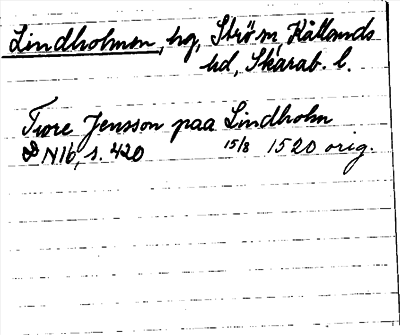 Lindholmen, hg, Ströms, Kållands
hd, Skarab. l.
Ture Jensson paa Lindholm
NI6, s. 420 15/8 1520 orig.